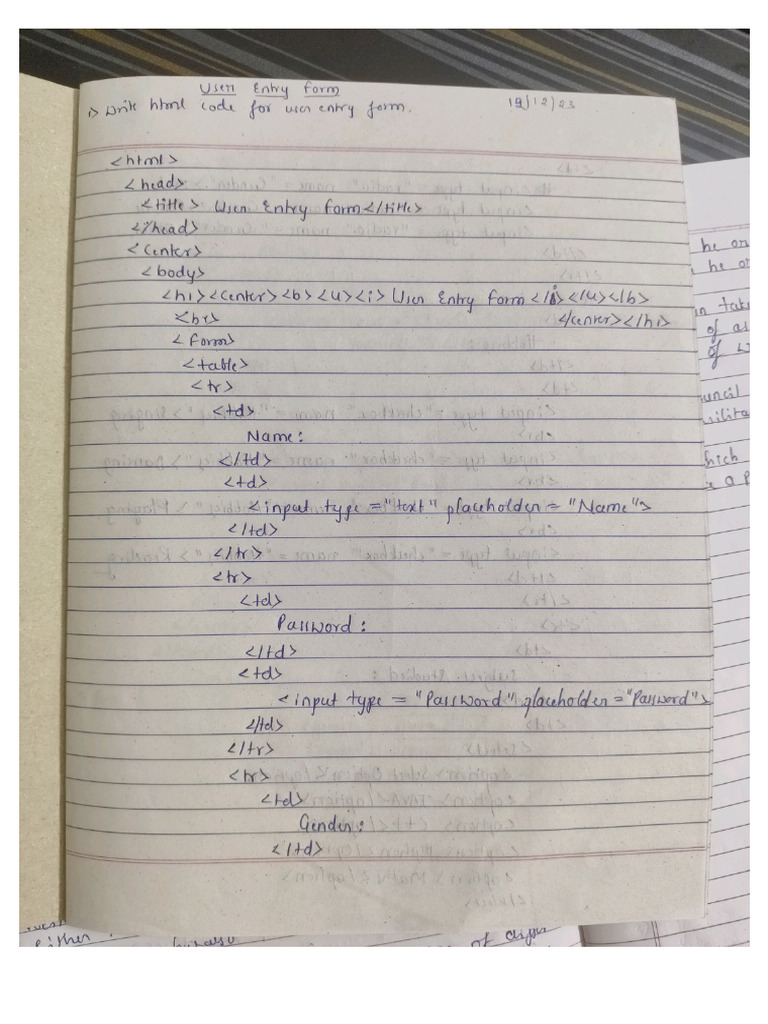 User Entry Form
1> Write html code for user entry form. 19/12/23
<html>
<head>
<title> User Entry Form</title>
</head>
<center>
<body>
<h1><center><b><u><i> User Entry Form </i></u></b>
<br> </center></h1>
<form>
<table>
<tr>
<td>
Name:
</td>
<td>
<input type ="text" placeholder = "Name">
</td>
</tr>
<tr>
<td>
Password:
</td>
<td>
<input type = "Password" placeholder = "Password">
</td>
</tr>
<tr>
<td>
Gender:
</td>
he on
he or
n take
of as
of
uncil
hich
either
of